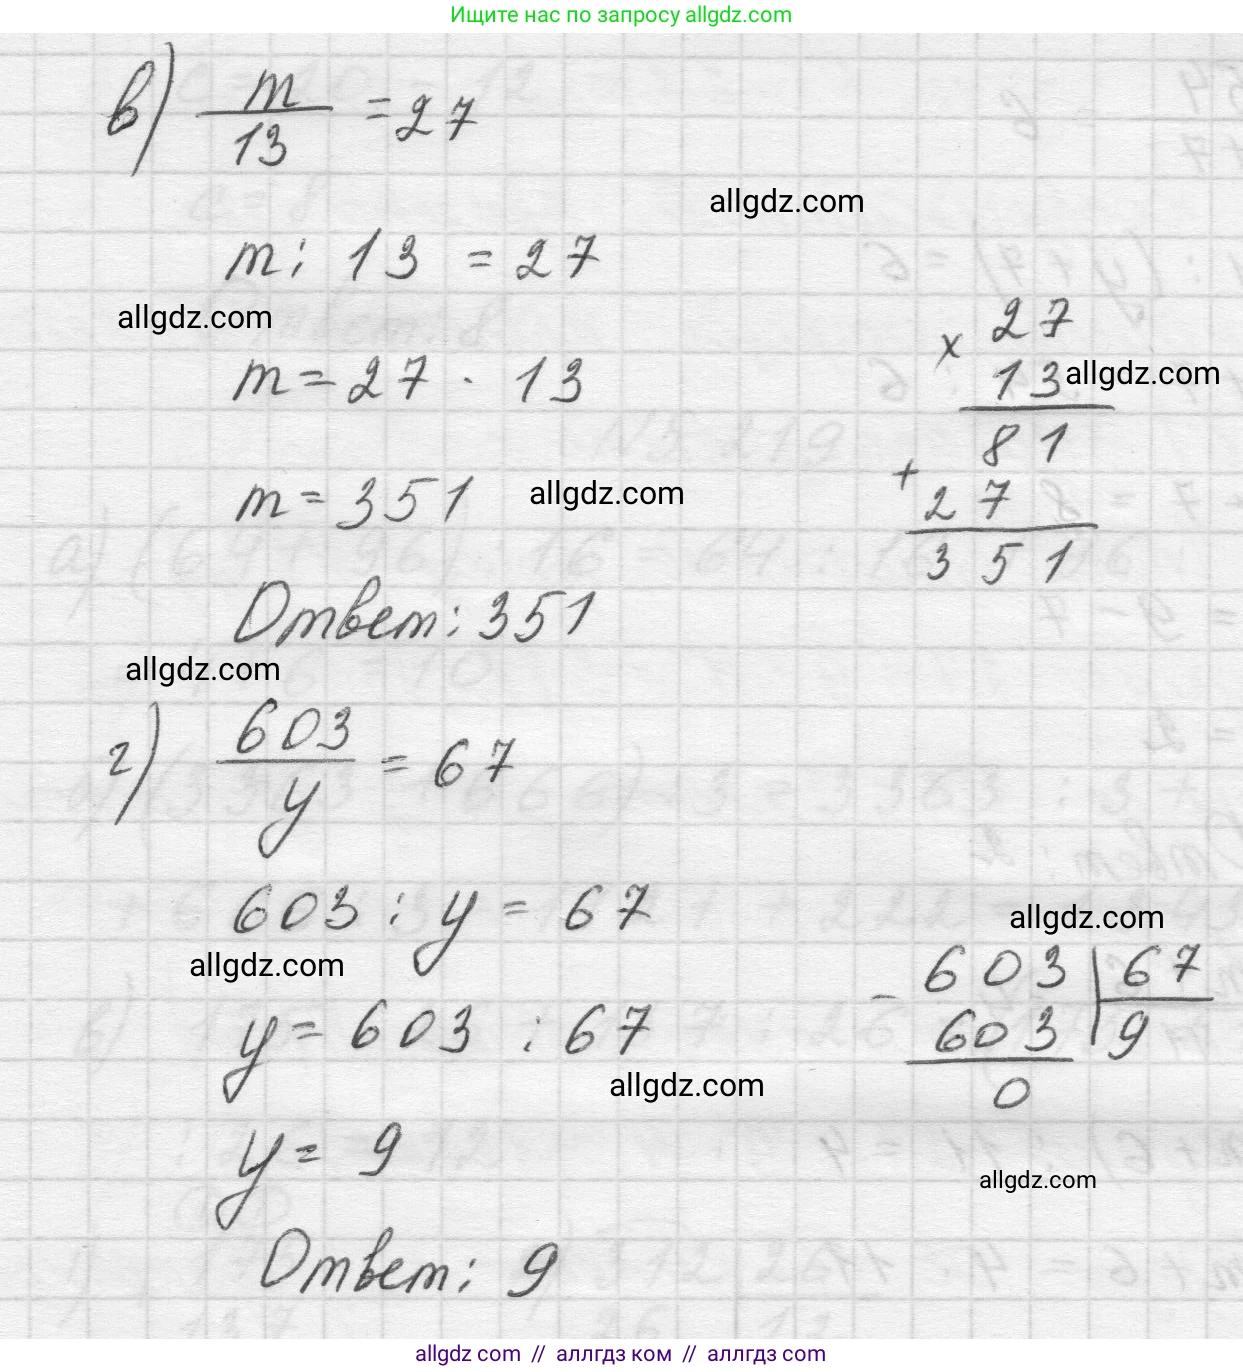 Ищите нас по запросу allgdz.com
в) m/13 = 27
allgdz.com
m : 13 = 27
allgdz.com
m = 27 · 13
m = 351
allgdz.com
Ответ: 351
× 27
13
allgdz.com
81
+ 27
351
allgdz.com
г) 603/y = 67
603 : y = 67
allgdz.com
allgdz.com
y = 603 : 67
allgdz.com
y = 9
Ответ: 9
- 603 | 67
603 | 9
0
allgdz.com
allgdz com // аллгдз ком // аллгдз com